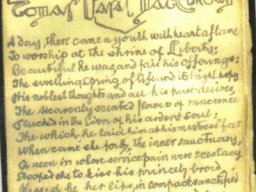 A day, there came a youth with heart aflame
To worship at the Shrine of Liberty;
Beautiful he was and fair his offerings:
The swelling spring of life and its high hopes
His noblest thoughts and all his pure desires,
The heavenly scented flower of innocence
in the Eden of his ardent soul;
The which he laid him at his mistress' feet
When came she forth the inner sanctuary,
Queen in whose service pain were ecstacy.
Stooped she to kiss his princely brow,
he her lips, in compact